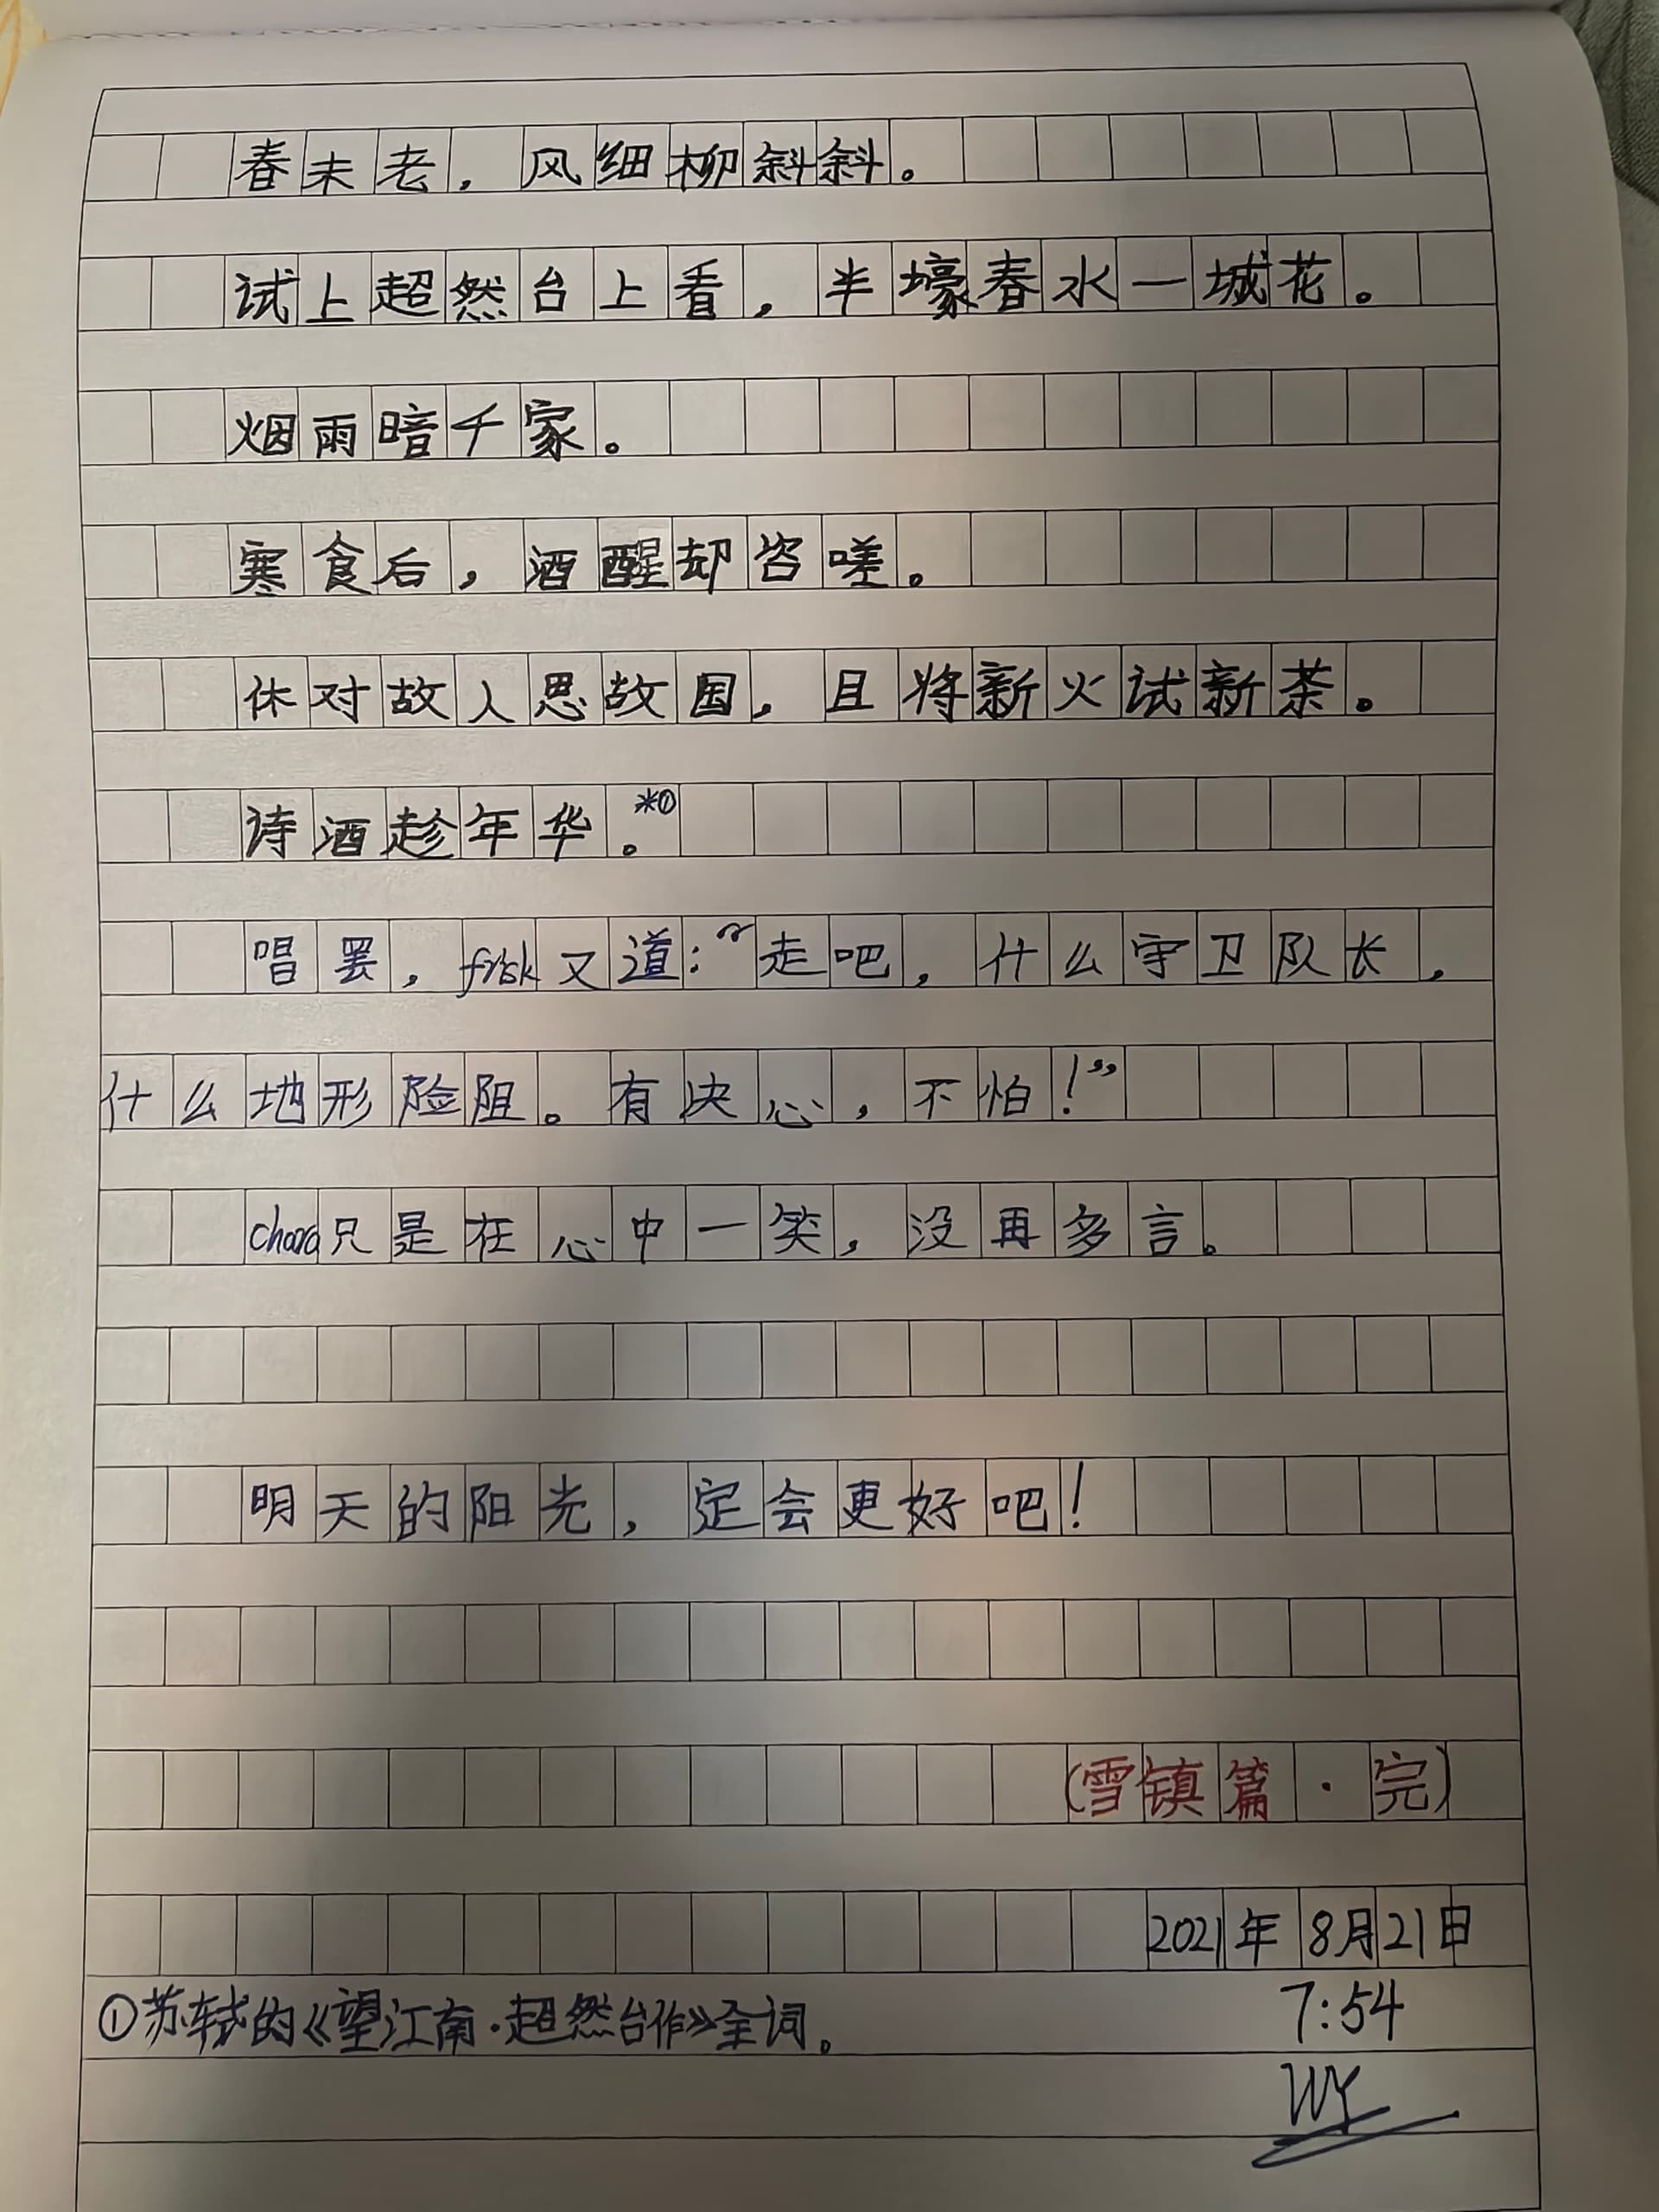 春未老，风细柳斜斜。
试上超然台上看，半壕春水一城花。
烟雨暗千家。
寒食后，酒醒却咨嗟。
休对故人思故国，且将新火试新茶。
诗酒趁年华。*①
唱罢，frisk又道：“走吧，什么守卫队长，
什么地形险阻。有决心，不怕！”
chara只是在心中一笑，没再多言。
明天的阳光，定会更好吧！
(雪镇篇·完)
2021年8月21日
7:54
①苏轼的《望江南·超然台作》全词。
WY